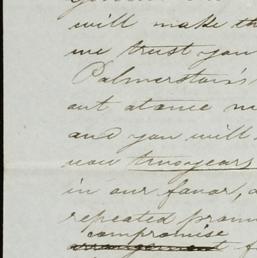 will make th
we trust you
Palmerston's
out atonce
and you will
now two years
in our favor,
repeated prom
compromise
arrangement